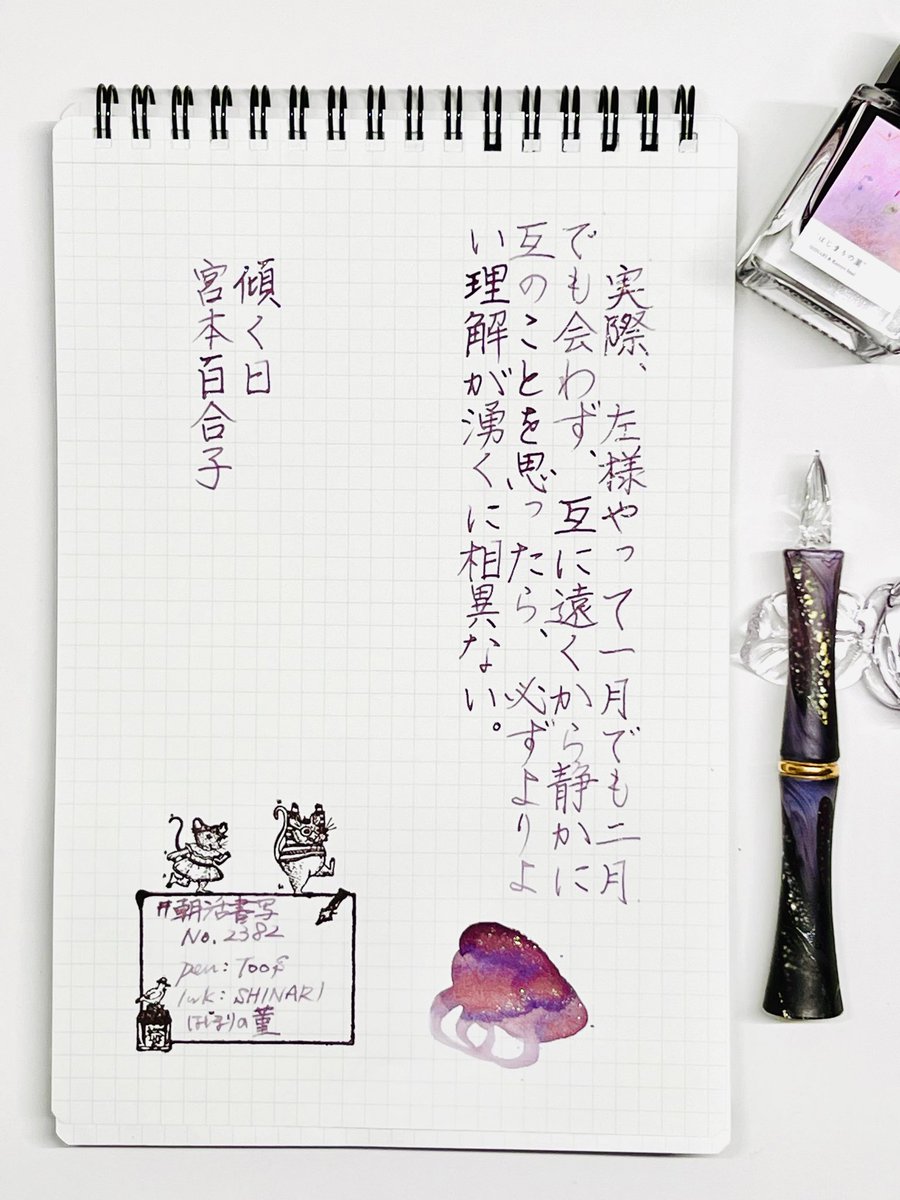 実際、左様やって一月でも二月
でも会わず、互に遠くから静かに
互のことを思ったら、必ずよりよ
い理解が湧くに相異ない。
傾く日
宮本百合子
#朝活書写
No. 2382
pen: Toos
Ink: SHINARI
はじまりの菫
はじまりの菫